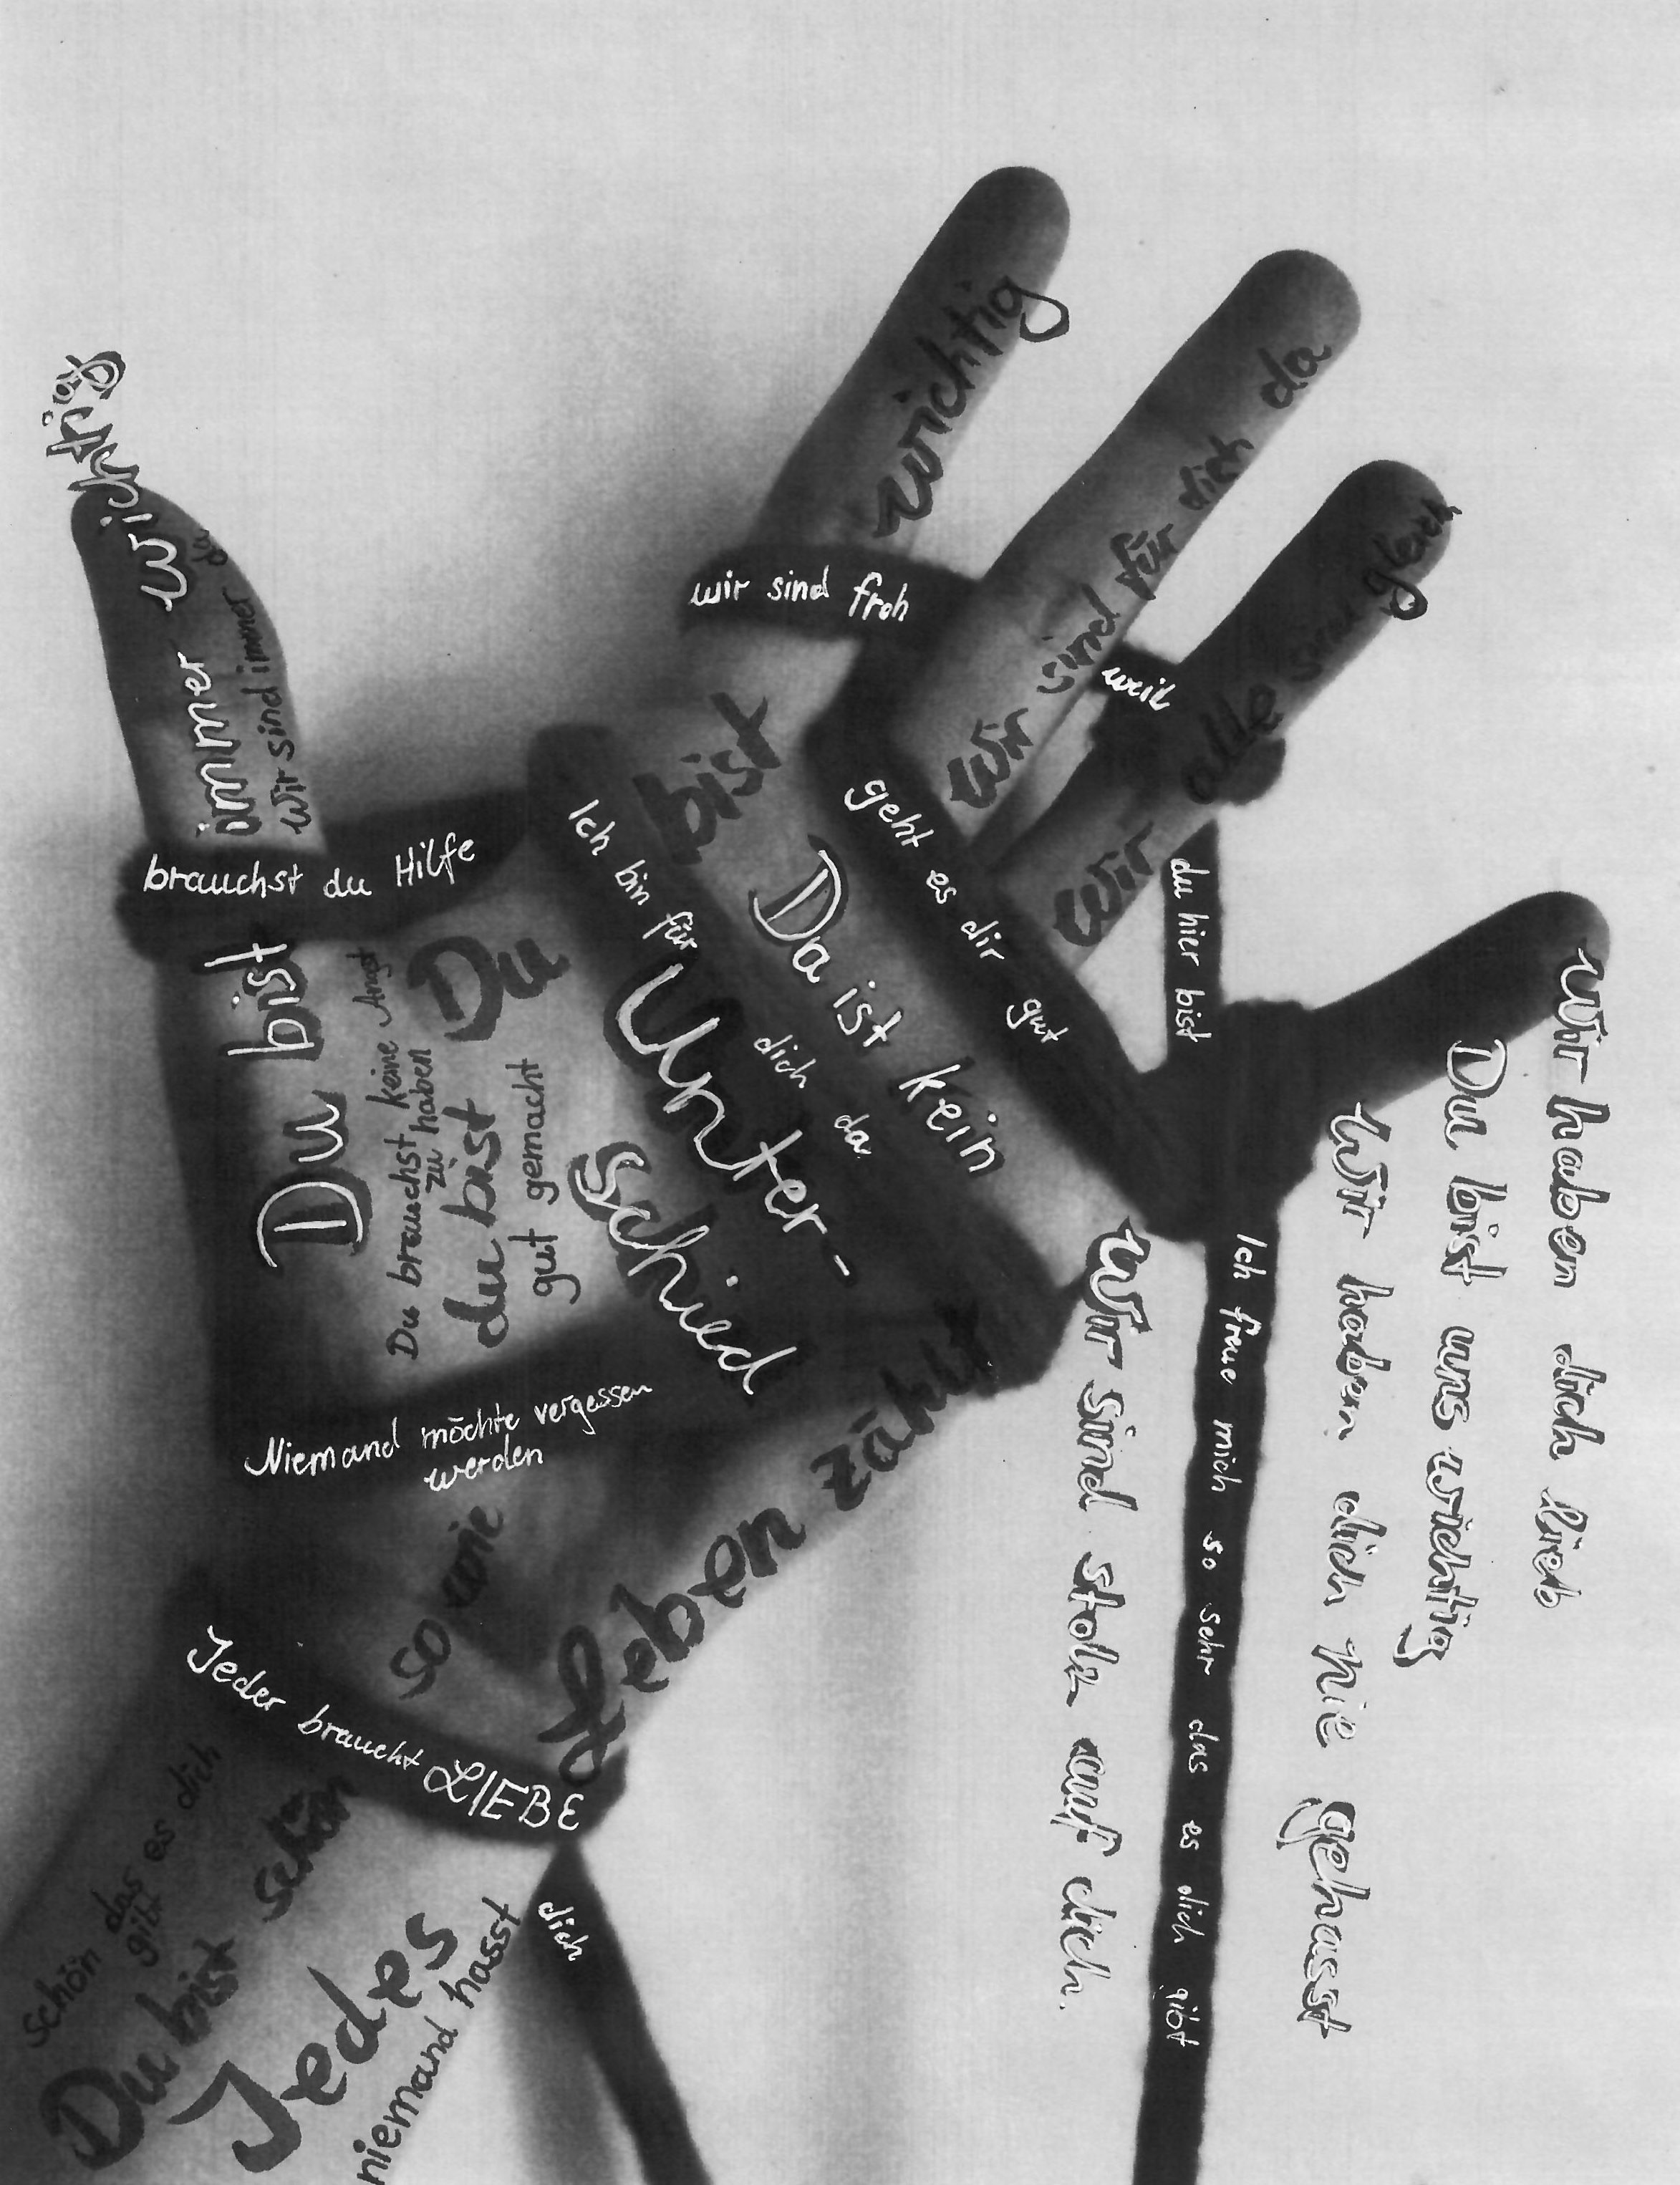 wichtig
wir sind für dich da
wir alle sind gleich
wir sind froh
weil
du hier bist
geht es dir gut
immer wichtig
wir sind immer da
brauchst du Hilfe
Du bist
Du brauchst keine Angst
zu haben
Du bist
du bist
gut gemacht
Ich bin für dich da
Da ist kein
Unter-
schied
Niemand möchte vergessen
werden
so wie
Jeder braucht LIEBE
Jedes Leben zählt
schön das es dich
gibt
Du bist schön
niemand hasst dich
Wir haben dich lieb
Du bist uns wichtig
Wir haben dich nie gehasst
Ich freue mich so sehr das es dich gibt
Wir sind stolz auf dich.